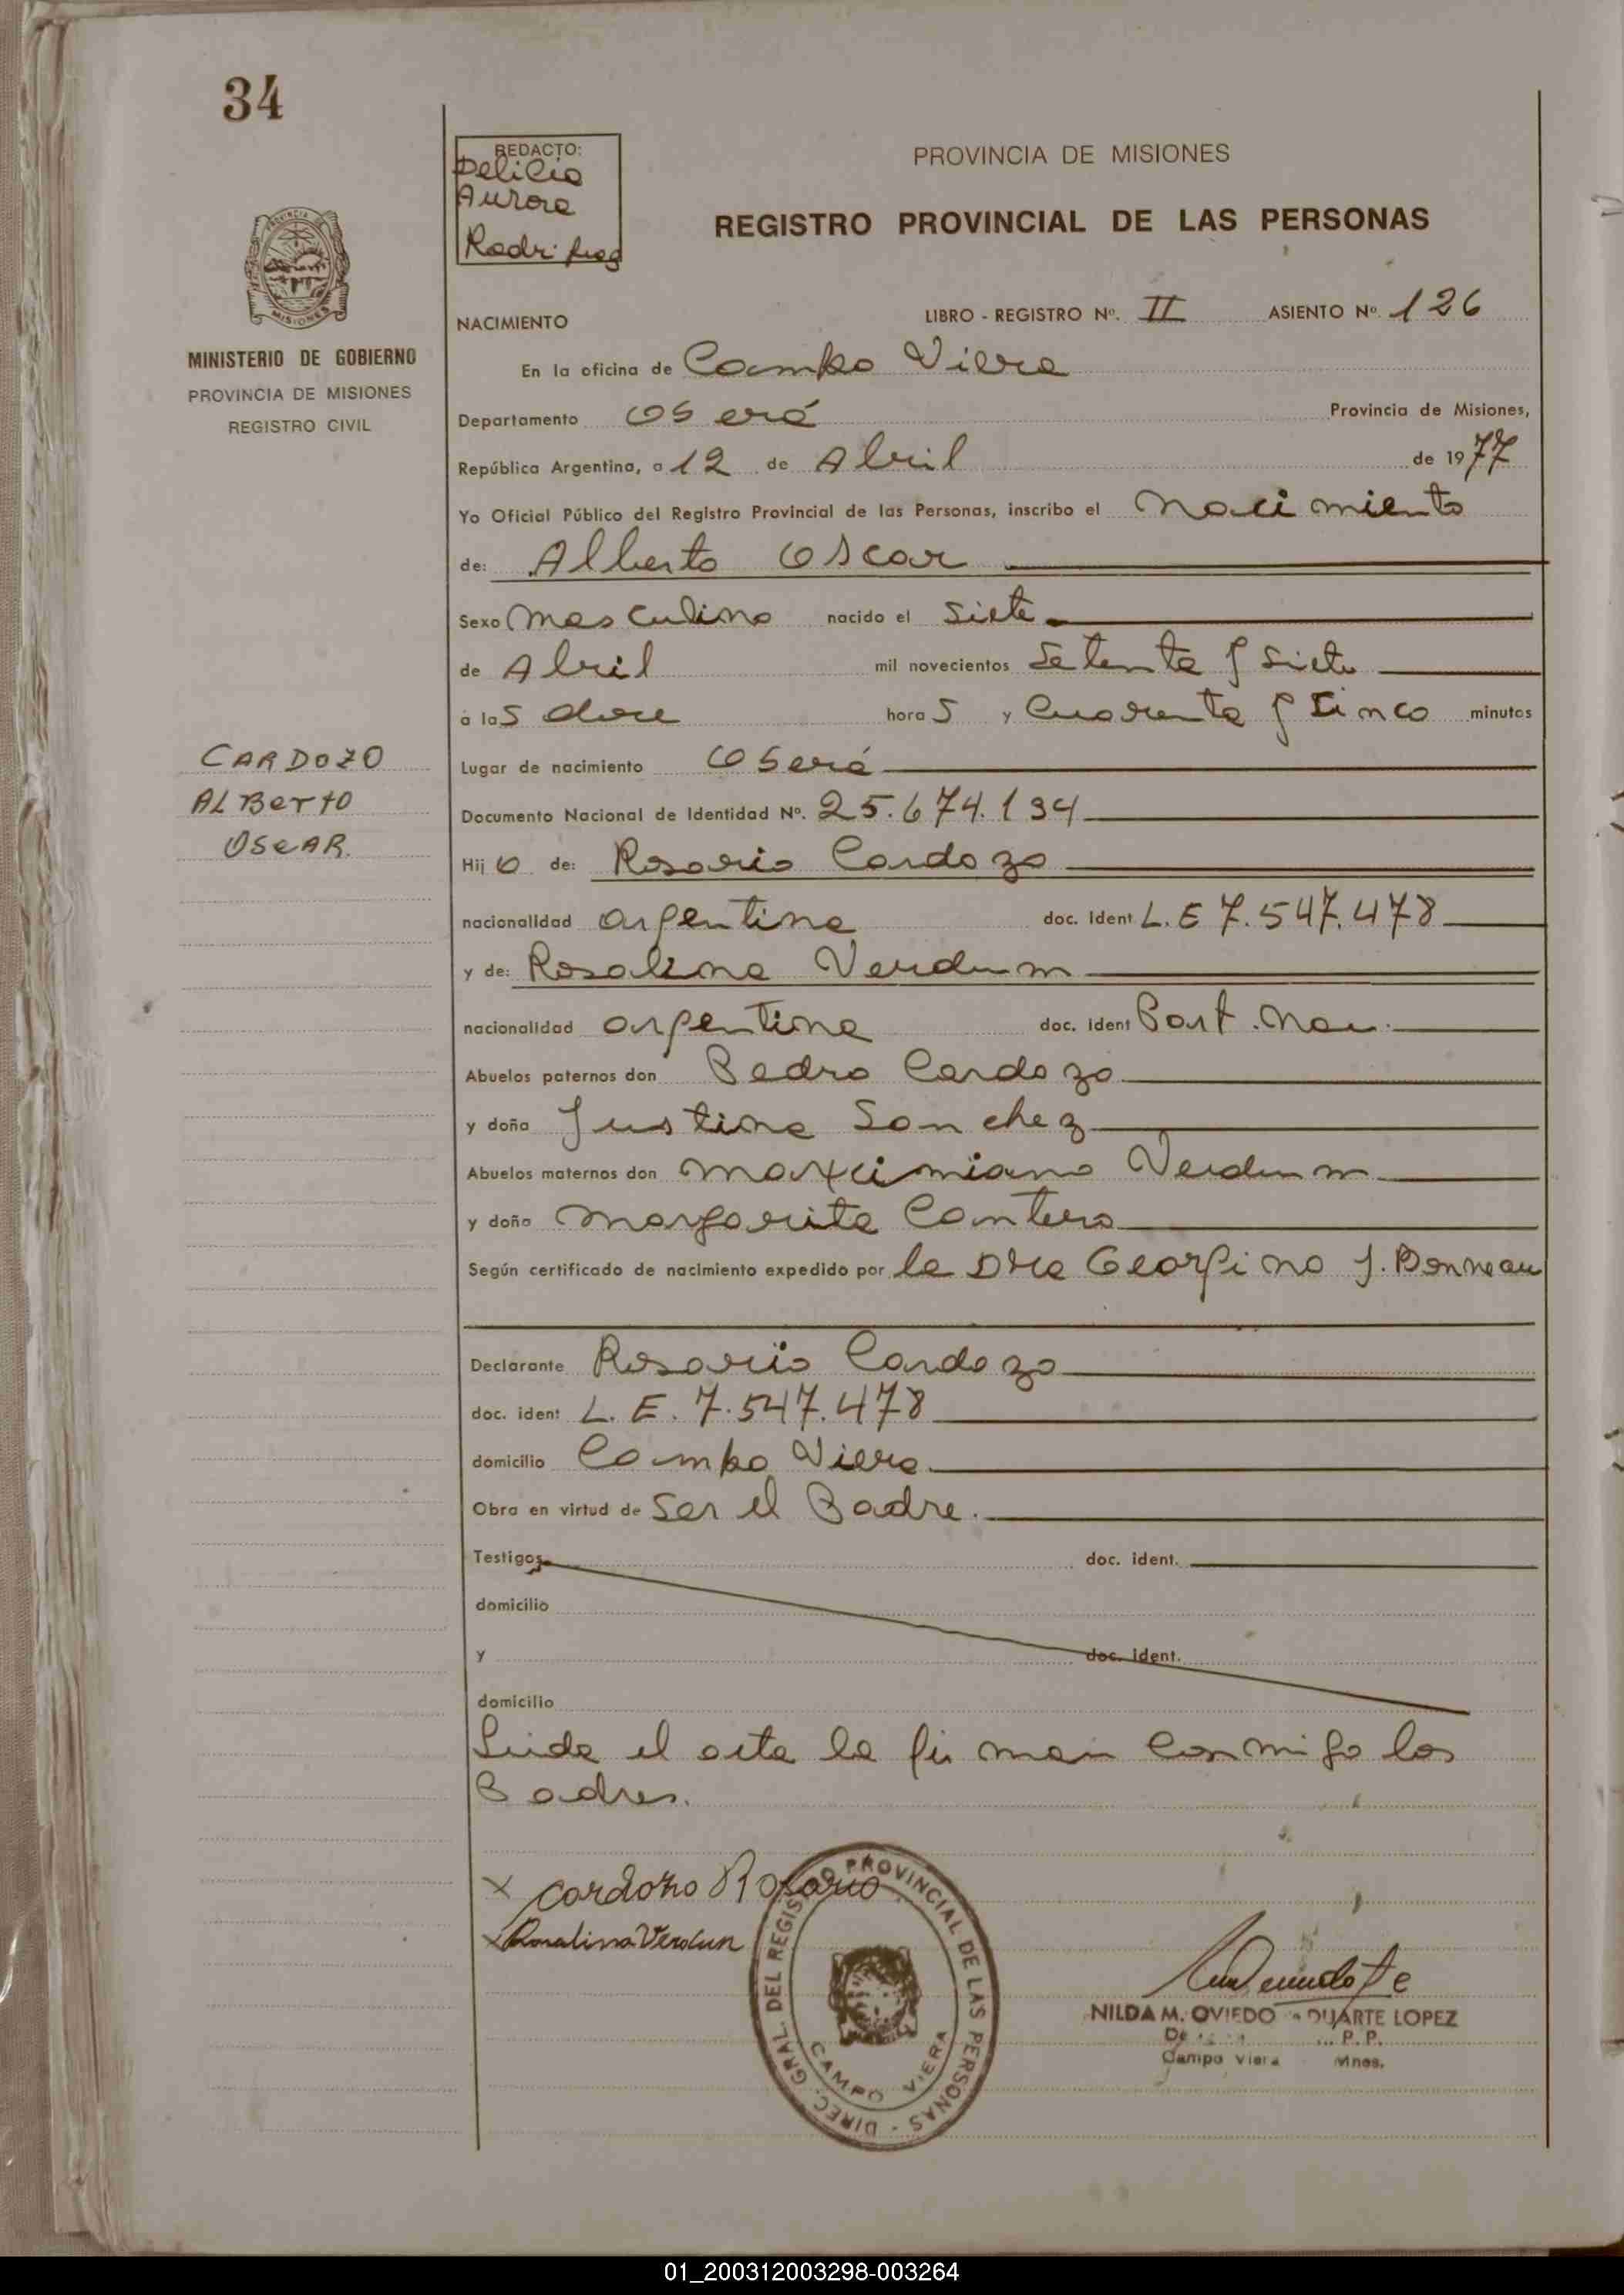 34
REDACTO:
Delicia
Aurora
Rodriguez
PROVINCIA DE MISIONES
REGISTRO PROVINCIAL DE LAS PERSONAS
PROVINCIA DE
MISIONES
MINISTERIO DE GOBIERNO
PROVINCIA DE MISIONES
REGISTRO CIVIL
NACIMIENTO LIBRO - REGISTRO Nº. II ASIENTO Nº. 126
En la oficina de Campo Viera
Departamento Oberá Provincia de Misiones,
República Argentina, a 12 de Abril de 1977
Yo Oficial Público del Registro Provincial de las Personas, inscribo el Nacimiento
de: Alberto Oscar
Sexo Masculino nacido el Siete
de Abril mil novecientos Setenta y Siete
a las doce horas y Cuarenta y Cinco minutos
CARDOZO
ALBERTO
OSCAR.
Lugar de nacimiento Oberá
Documento Nacional de Identidad Nº. 25.674.194
Hijo de: Rosario Cardozo
nacionalidad argentina doc. Ident L. E 7.547.478
y de: Rosalina Verdum
nacionalidad argentina doc. Ident Part. Nac.
Abuelos paternos don Pedro Cardozo
y doña Justina Sanchez
Abuelos maternos don Maxcimiano Verdum
y doña Margarita Cantero
Según certificado de nacimiento expedido por la Dra Georgina J. Bonneau
Declarante Rosario Cardozo
doc. ident L. E. 7.547.478
domicilio Campo Viera
Obra en virtud de Ser el Padre.
Testigos doc. ident.
domicilio
y doc. ident.
domicilio
Leida el acta la firman conmigo los
Padres.
x Cardozo Rosario
x Rosalina Verdun
DIREC. GRAL. DEL REGISTRO PROVINCIAL DE LAS PERSONAS -
CAMPO VIERA
NILDA M. OVIEDO DUARTE LOPEZ
P. P.
Campo Viera Mnes.
01_200312003298-003264